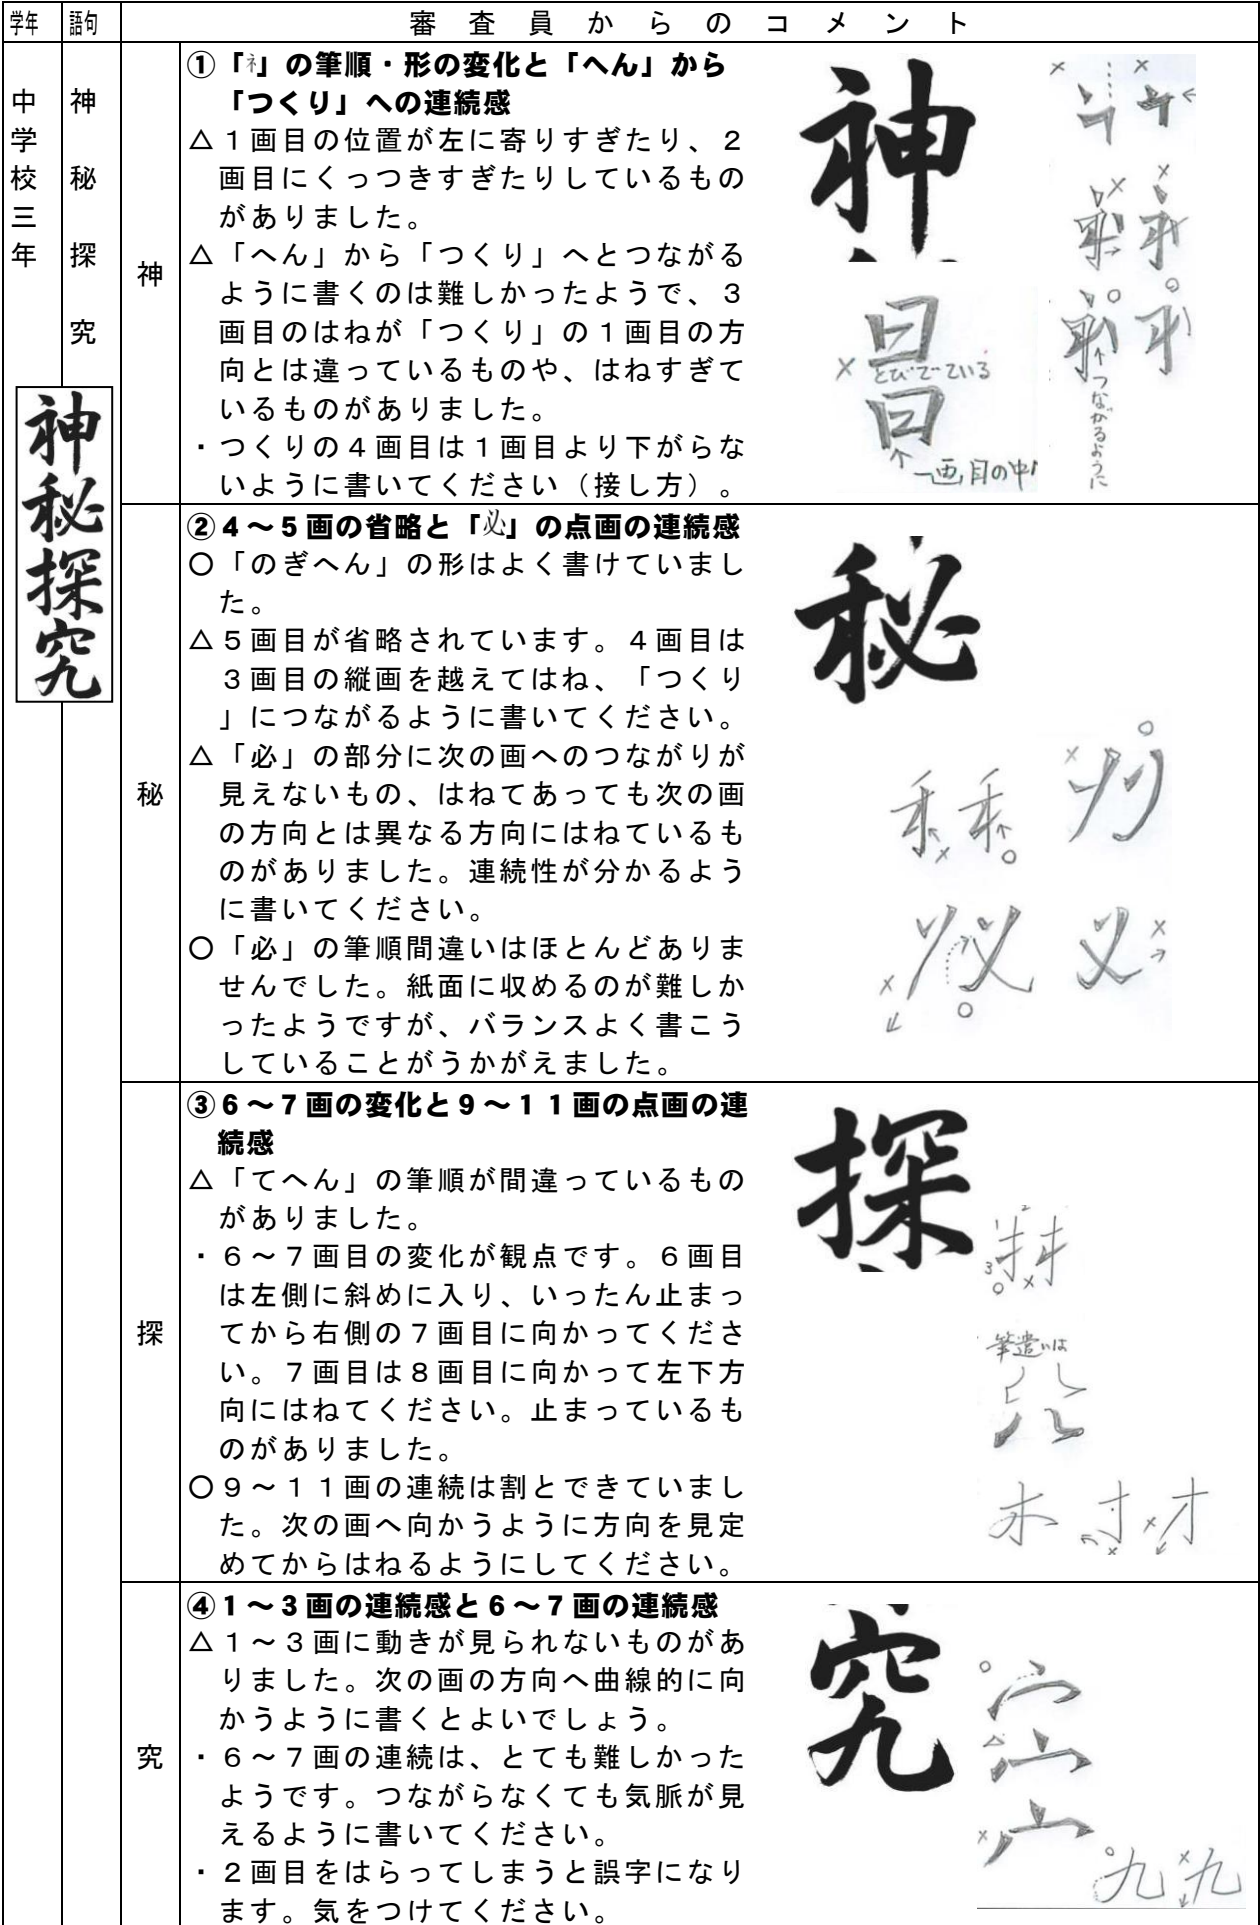 学年 語句 審査員からのコメント
中学校三年
神秘探究
神秘探究
神
①「ネ」の筆順・形の変化と「へん」から
「つくり」への連続感
△１画目の位置が左に寄りすぎたり、２
画目にくっつきすぎたりしているもの
がありました。
△「へん」から「つくり」へとつながる
ように書くのは難しかったようで、３
画目のはねが「つくり」の１画目の方
向とは違っているものや、はねすぎて
いるものがありました。
・つくりの４画目は１画目より下がらな
いように書いてください（接し方）。
神
×
×
×
×
○
○
つながるように
×
とびでている
一画目の中
秘
②４～５画の省略と「必」の点画の連続感
○「のぎへん」の形はよく書けていまし
た。
△５画目が省略されています。４画目は
３画目の縦画を越えてはね、「つくり
」につながるように書いてください。
△「必」の部分に次の画へのつながりが
見えないもの、はねてあっても次の画
の方向とは異なる方向にはねているも
のがありました。連続性が分かるよう
に書いてください。
○「必」の筆順間違いはほとんどありま
せんでした。紙面に収めるのが難しか
ったようですが、バランスよく書こう
していることがうかがえました。
秘
×
○
×
○
×
○
×
探
③６～７画の変化と９～１１画の点画の連
続感
△「てへん」の筆順が間違っているもの
がありました。
・６～７画目の変化が観点です。６画目
は左側に斜めに入り、いったん止まっ
てから右側の７画目に向かってくださ
い。７画目は８画目に向かって左下方
向にはねてください。止まっているも
のがありました。
○９～１１画の連続は割とできていまし
た。次の画へ向かうように方向を見定
めてからはねるようにしてください。
探
1 2
3
○ ×
筆遣いは
×
×
究
④１～３画の連続感と６～７画の連続感
△１～３画に動きが見られないものがあ
りました。次の画の方向へ曲線的に向
かうように書くとよいでしょう。
・６～７画の連続は、とても難しかった
ようです。つながらなくても気脈が見
えるように書いてください。
・２画目をはらってしまうと誤字になり
ます。気をつけてください。
究
○
△
×
○九 ×九